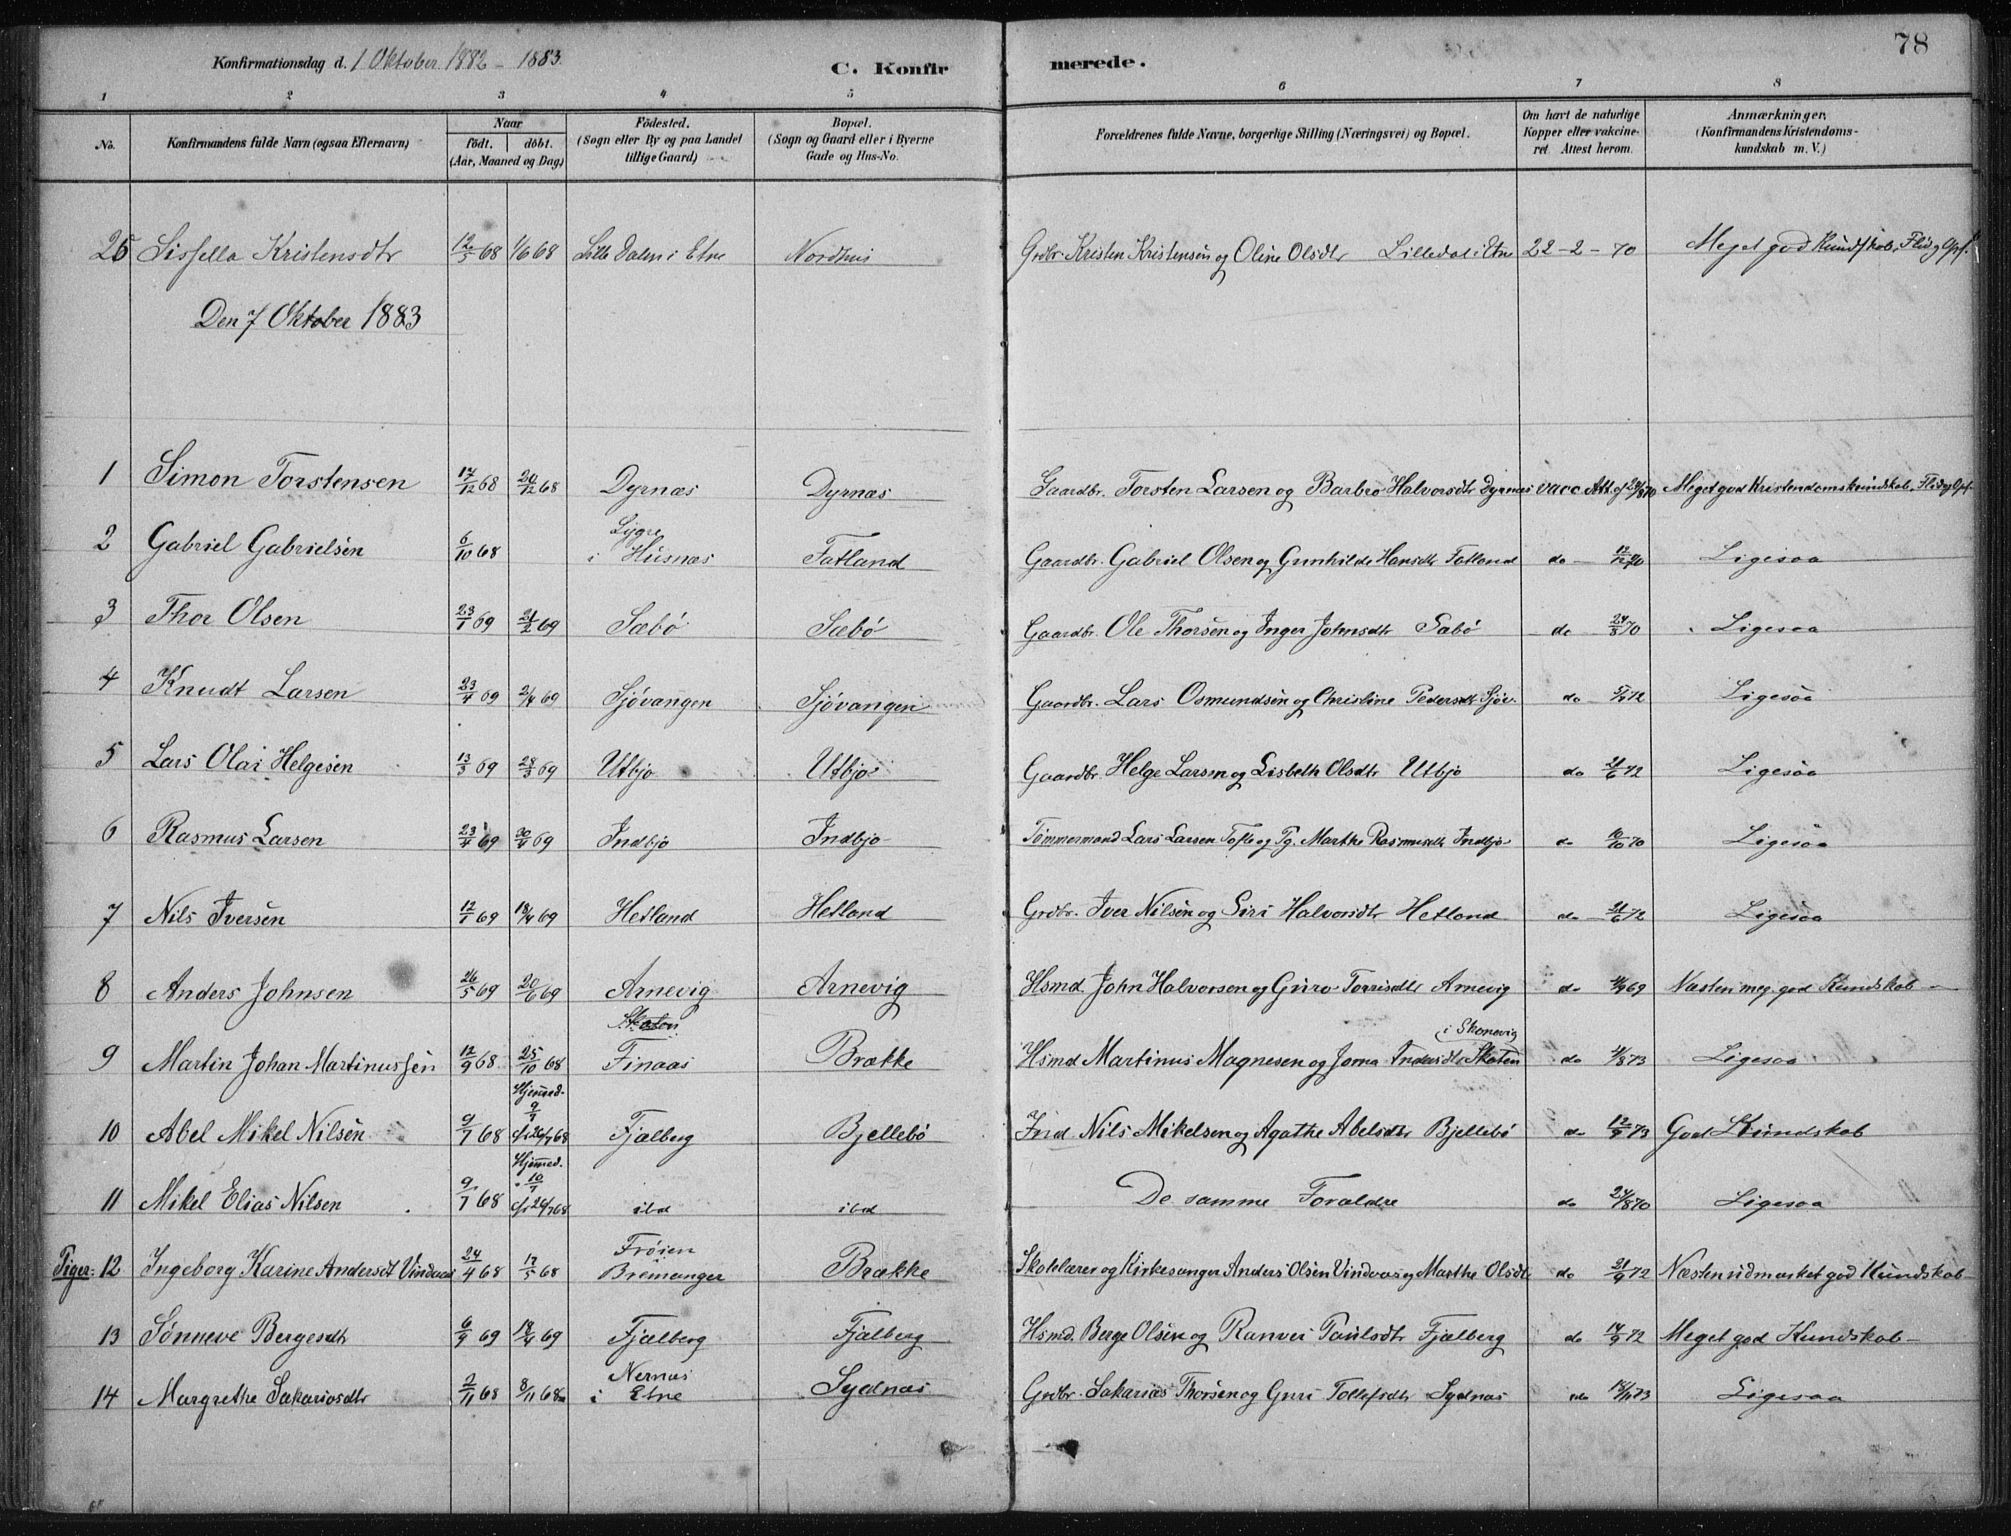 78
Konfirmationsdag d. 1 Oktober 1882 - 1883.
C. Konfirmerede.
1 2 3 4 5 6 7 8
No. Konfirmandens fulde Navn (ogsaa Efternavn) Naar født. døbt. (Aar, Maaned og Dag) Fødested. (Sogn eller By og paa Landet tillige Gaard) Bopæl. (Sogn og Gaard eller i Byerne Gade og Hus-No. Forældrenes fulde Navne, borgerlige Stilling (Næringsvei) og Bopæl. Om havt de naturlige Kopper eller vakcineret. Attest herom. Anmærkninger. (Konfirmandens Kristendomskundskab m. V.)
25 Sissella Kristensdtr 12/5 68 1/6 68 Lille Dalen i Etne Nordhus Grdbr. Kristen Kristensen og Oline Olsdtr Lilledal i Etne 22-2-70 Meget god Kundskab, Flid og Opf.
Den 7 Oktober 1883
1 Simon Torstensen 17/12 68 20/12 68 Dyrnæs Dyrnæs Gaardbr. Torsten Larsen og Barbro Halvorsdtr Dyrnæs vacc. Att. af 24/8 70 Meget god Kristendomskundskab, Flid og Opf.
2 Gabriel Gabrielsen 6/10 68 Lygre i Husnæs Fatland Gaardbr. Gabriel Olsen og Gunhilde Hansdtr Fatland do 12/12 70 Ligesaa
3 Thor Olsen 23/1 69 21/2 69 Sæbö Sæbö Gaardbr. Ole Thorsen og Inger Johnsdtr Sæbö do 24/8 70 Ligesaa
4 Knudt Larsen 23/4 69 2/4 69 Sjövangen Sjövangen Gaardbr. Lars Osmundsen og Christine Pedersdtr Sjöv. do 5/9 72 Ligesaa
5 Lars Olai Helgesen 13/3 69 28/3 69 Utbjo Utbjo Gaardbr. Helge Larsen og Lisbeth Olsdtr Utbjo do 21/6 72 Ligesaa
6 Rasmus Larsen 23/4 69 30/4 69 Indbjo Indbjo Tömmermand Lars Larsen Tofte og Pg. Marthe Rasmusdtr Indbjo do 10/10 70 Ligesaa
7 Nils Iversen 12/1 69 18/4 69 Hetland Hetland Grdbr. Iver Nilsen og Siri Halvorsdtr Hetland do 21/6 72 Ligesaa
8 Anders Johnsen 26/5 69 20/6 69 Arnevig Arnevig Hsmd John Halvorsen og Guro Torrisdtr Arnevig do 4/9 69 Næsten meg. god Kundskab
9 Martin Johan Martinussen 12/9 68 25/10 68 Skaten Finaas Brække Hsmd Martinus Magnesen og Jorna Endersdtr Skaten i Skonevig do 4/8 73 Ligesaa
10 Abel Mikel Nilsen 9/7 68 Hjemmed. 9/7 f. 26/7 68 Fjælberg Bjellebö Ind. Nils Mikelsen og Agathe Abelsdtr Bjellebö do 12/9 73 God Kundskab
11 Mikel Elias Nilsen 9/7 68 Hjemmed. 10/7 f. 26/7 68 ibd ibd De samme Forældre do 24/8 70 Ligesaa
Piger: 12 Ingeborg Karine Andersdt Vindenes 24/4 68 17/5 68 Fröien Bremanger Brække Skolelærer og Kirkesanger Anders Olsen Vindenes og Marthe Olsdtr do 21/9 72 Næsten udmærket god Kundskab
13 Sönneve Bergesdtr 6/4 69 18/4 69 Fjælberg Fjælberg Hsmd. Berge Olsen og Ranvei Paulsdtr Fjælberg do 14/9 72 Meget god Kundskab
14 Margrethe Sakariasdtr 2/11 68 8/11 68 Nernæs i Etne Sydnæs Grdbr. Sakarias Thorsen og Guri Tollefsdtr Sydnæs do 14/9 73 Ligesaa